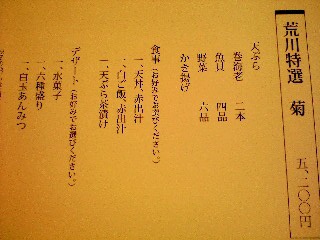 荒川特選　菊　五、二〇〇円
天ぷら
巻海老　二本
魚貝　四品
野菜　六品
かき揚げ
食事（お好みでお選びください。）
一、天丼、赤出汁
一、白ご飯、赤出汁
一、天ぷら茶漬け
デザート（お好みでお選びください。）
一、水菓子
一、六種盛り
一、白玉あんみつ